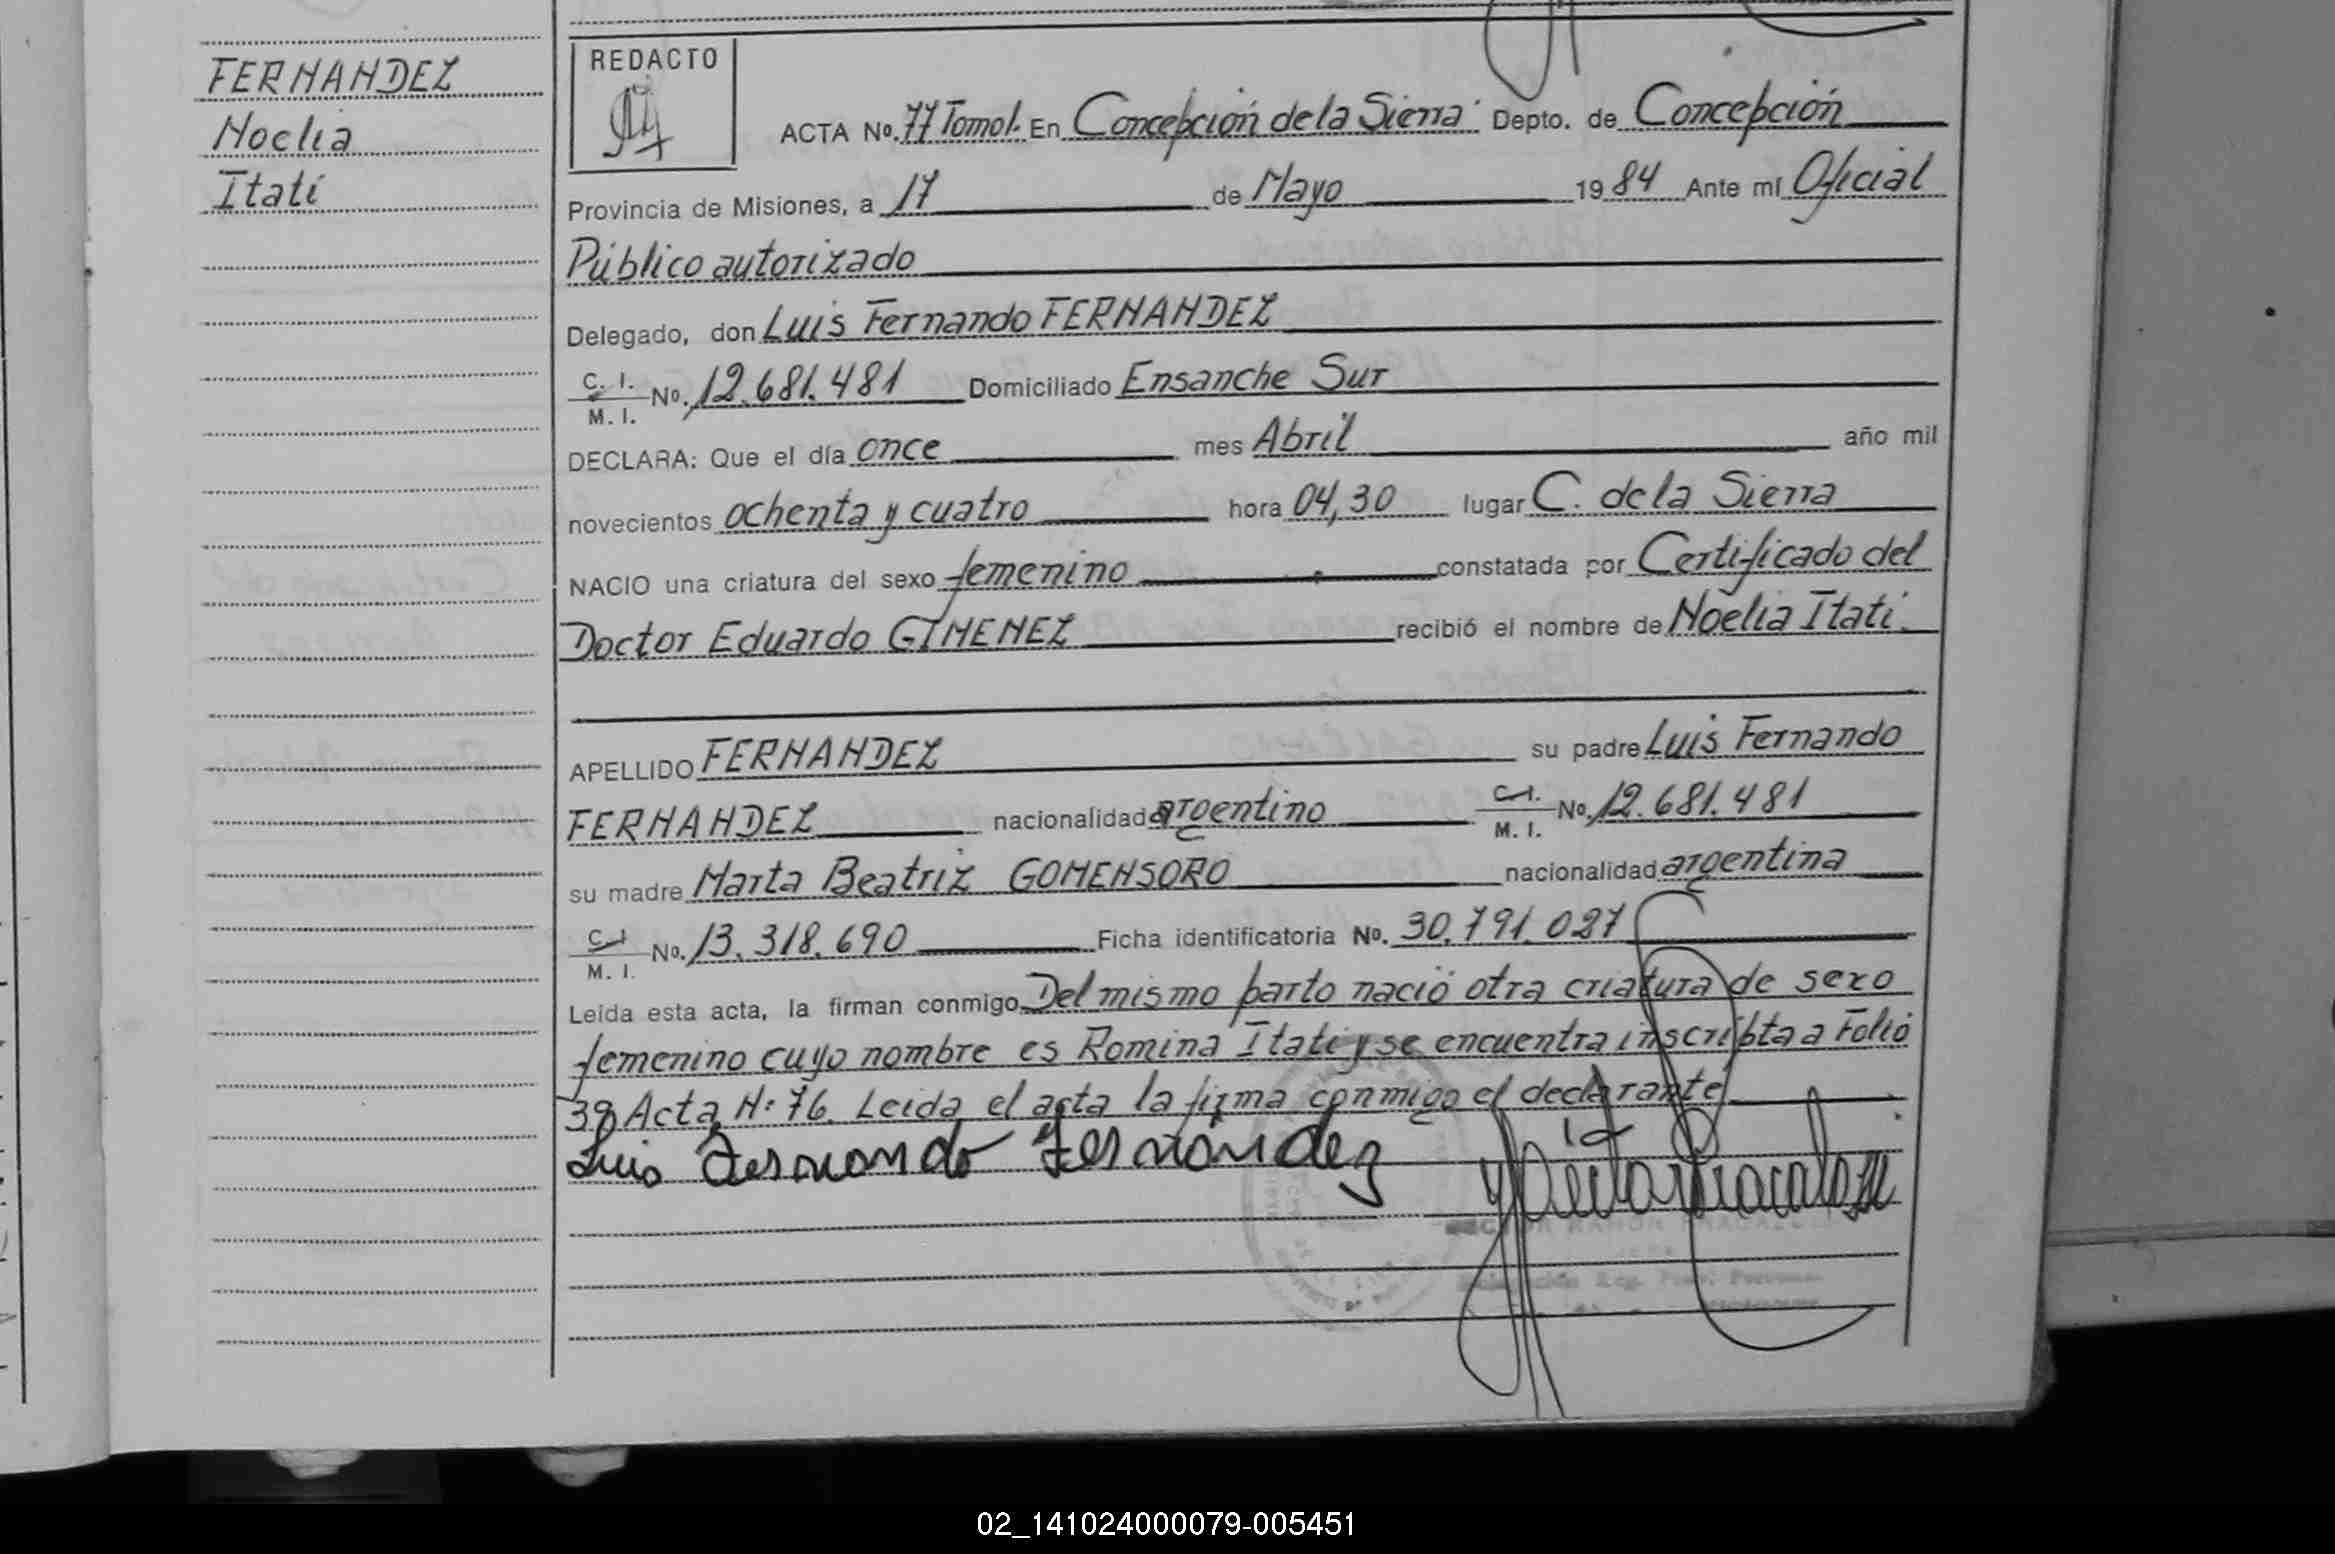 FERNANDEZ
Noelia
Itatí
REDACTO
ACTA No. 77 Tomo I. En Concepción de la Sierra. Depto. de Concepción
Provincia de Misiones, a 17 de Mayo 1984 Ante mí Oficial
Público autorizado
Delegado, don Luis Fernando FERNANDEZ
C. I. M. I. No. 12.681.481 Domiciliado Ensanche Sur
DECLARA: Que el día once mes Abril año mil
novecientos ochenta y cuatro hora 04,30 lugar C. de la Sierra
NACIO una criatura del sexo femenino constatada por Certificado del
Doctor Eduardo GIMENEZ recibió el nombre de Noelia Itatí.
APELLIDO FERNANDEZ su padre Luis Fernando
FERNANDEZ nacionalidad argentino C. I. M. I. No. 12.681.481
su madre Marta Beatriz GOMENSORO nacionalidad argentina
C. I. M. I. No. 13.318.690 Ficha identificatoria No. 30.791.027
Leída esta acta, la firman conmigo Del mismo parto nació otra criatura de sexo
femenino cuyo nombre es Romina Itatí y se encuentra inscribta a Folio
39 Acta N: 76. Leída el acta la firma conmigo el declarante
Luis Fernando Fernández
02_141024000079-005451